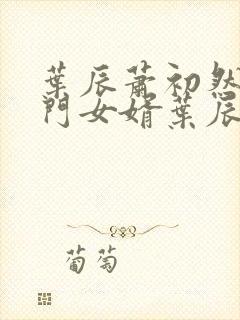 葉辰蕭初然
門女婿葉辰
葡萄